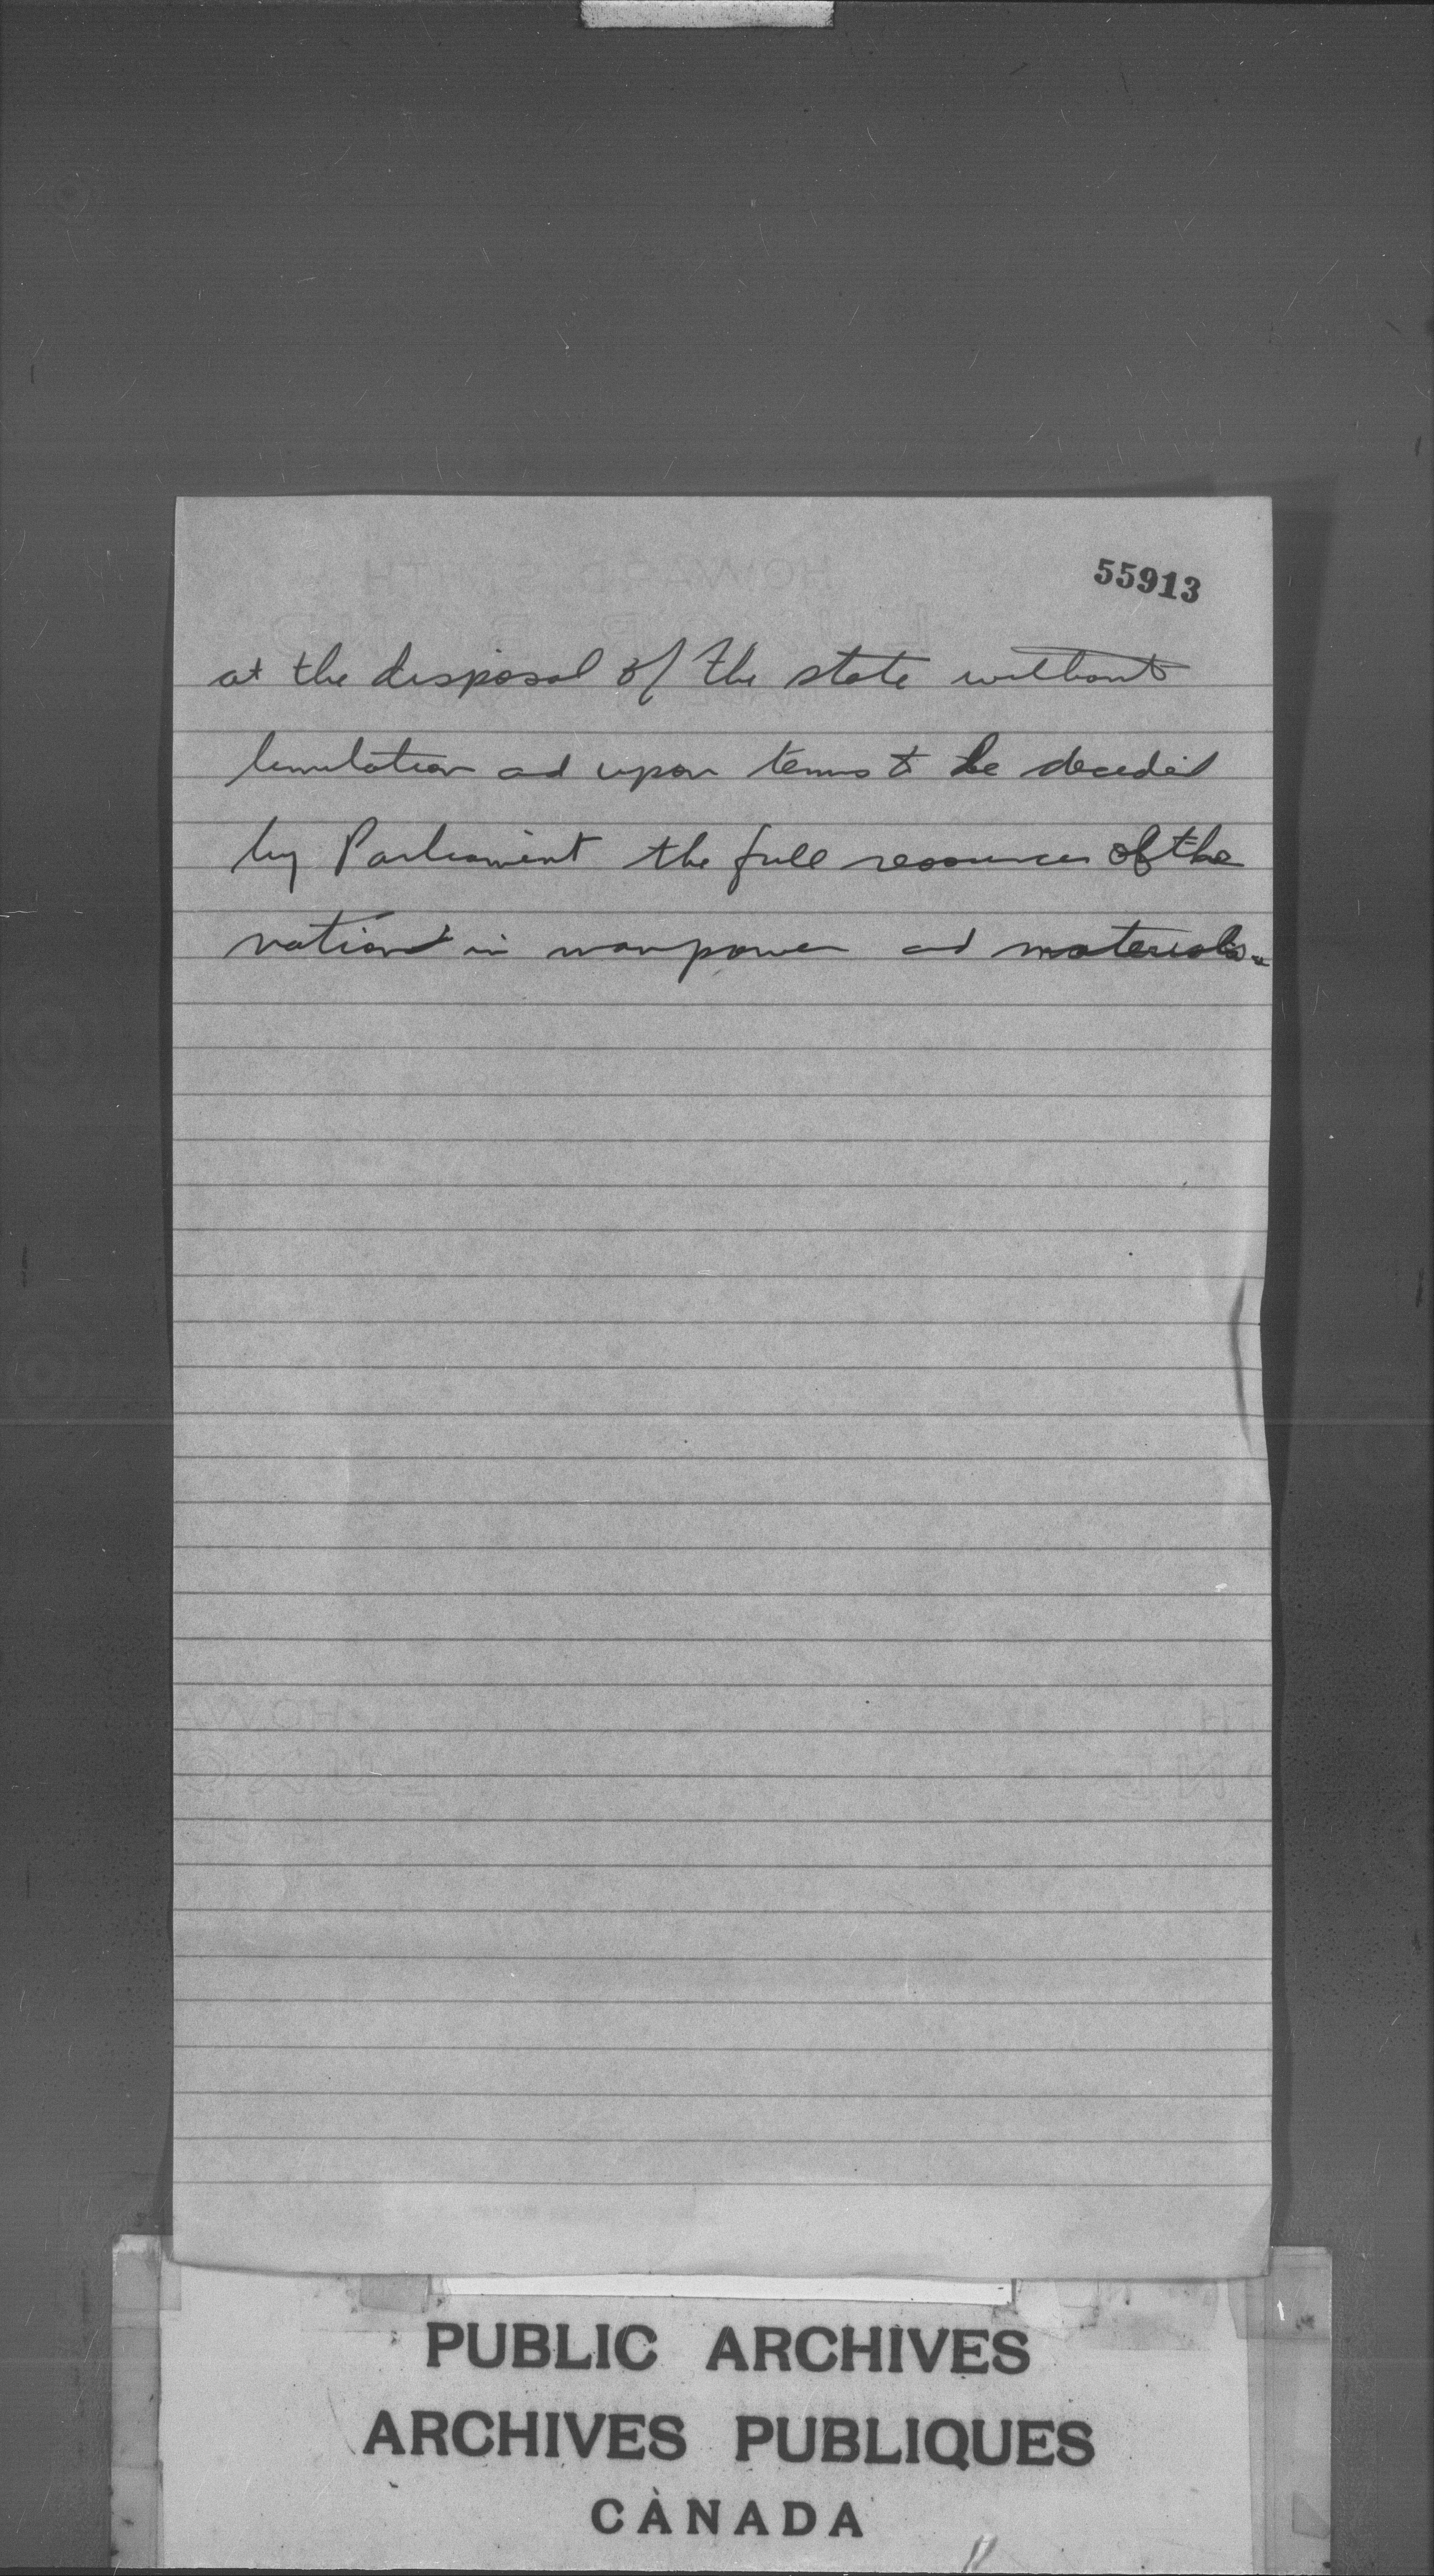 55913
at the disposal of the state without
limitation and upon terms to be decided
by Parliament the full resources of the
nation in manpower and materials.
PUBLIC ARCHIVES
ARCHIVES PUBLIQUES
CANADA